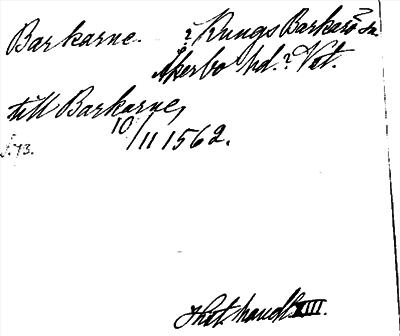 Barkarne. ? Kungs Barkarö? sn
Åkerbo hd.? Vst.
till Barkarne,
10/11 1562.
s. 73.
Hist. handl. XIII.